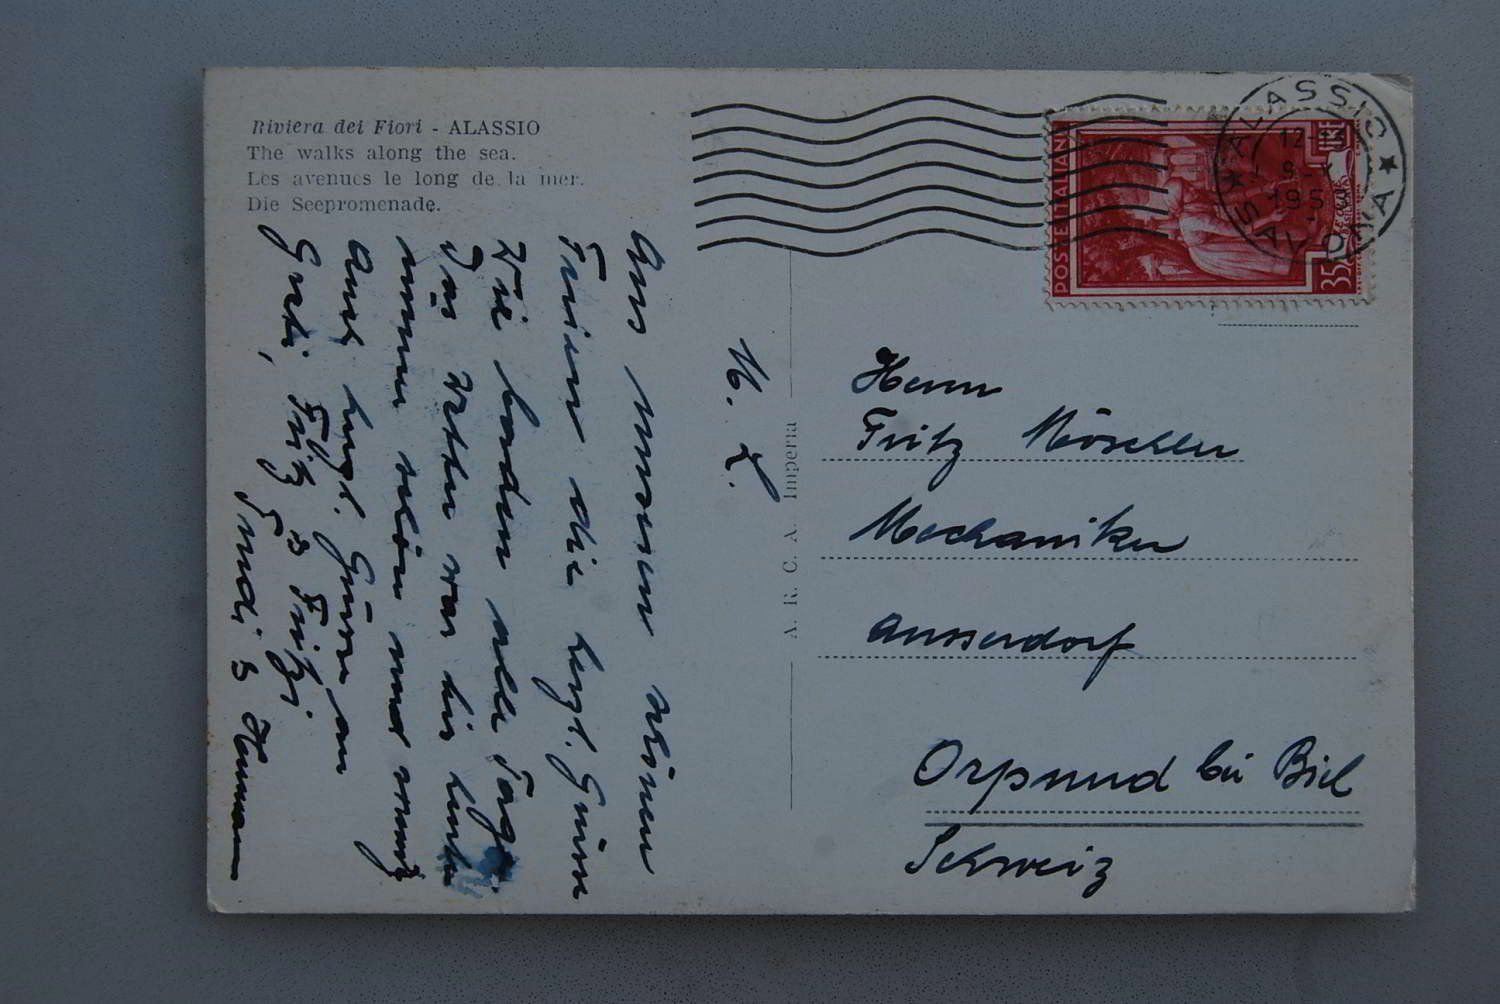 Riviera dei Fiori - ALASSIO
The walks along the sea.
Les avenues le long de la mer.
Die Seepromenade.
M. L.
Aus unseren schönen
Ferien die herzl. Grüsse
Wir baden alle Tage.
Das Wetter war bis heute
immer schön und
Auch herzl. Grüsse an
Greti, Fritz & Fritzi
Trudi & Hermann
A. R. C. A. Imperia
POSTE ITALIANE
LIRE
35
ALASSIO
SAVONA
195
Herrn
Fritz
Mechaniker
Ausserdorf
Orpund bei Biel
Schweiz